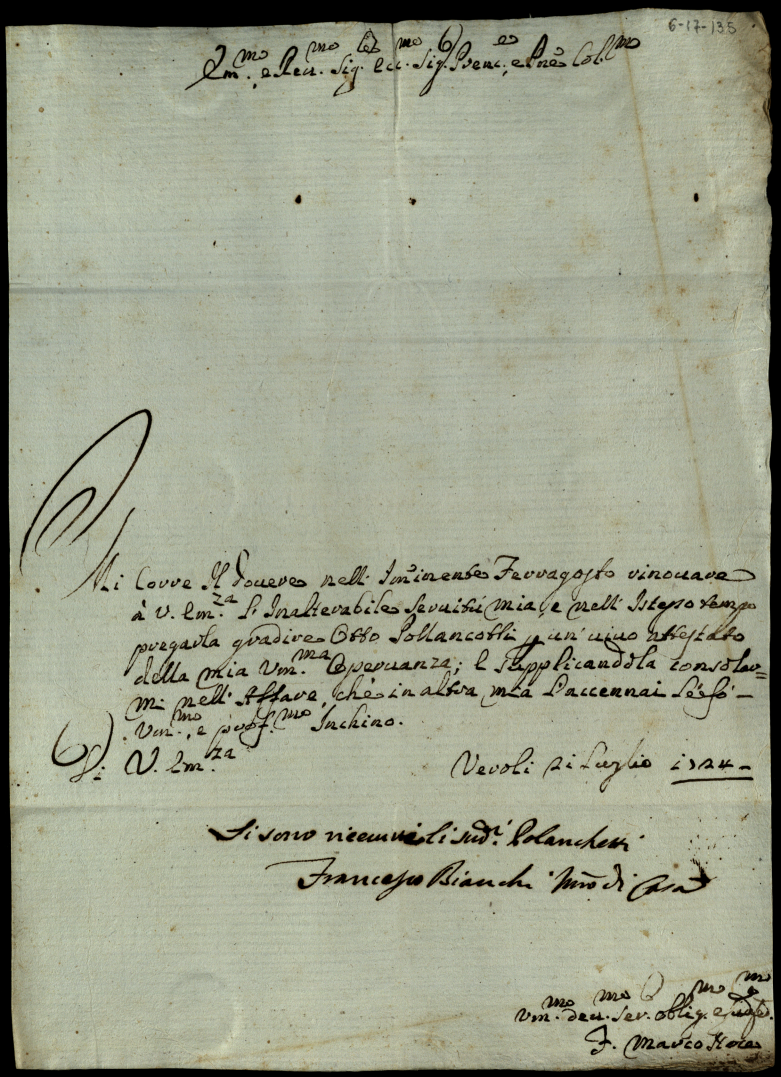 6-17-135
Em.mo e Rev.mo Sig. Ecc.mo Sig. Prenc.e e Pne Col.mo
Mi Corre Il Douere nell' Im̃inente Ferragosto rinouare
à V. Em.za L'Inalterabile Seruitù mia, e nell' Istesso tempo
pregarla gradire Otto Pollancotti p un' uiuo attestato
della mia Vm.ma Osseruanza; E supplicandola consolar=
mi nell' Affare, che in altra mia L'accennai Le fò
Vm.mo, e prof.mo Inchino.
Di V. Em.za
Veroli 21 Luglio 1724
Si sono riceuuti li sud.i Polanchetti
Francesco Bianchi Mro di Casa
Vm.mo deu.mo Ser. oblig.mo e
F. Marco